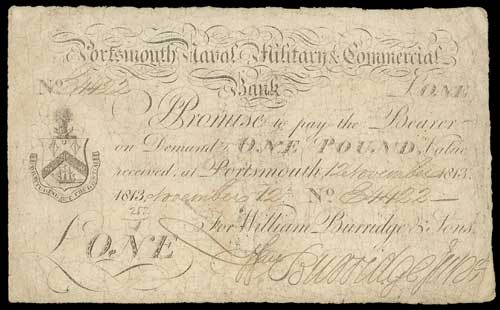 Portsmouth Naval Military & Commercial
Bank
No 34422 £ONE
I Promise to pay the Bearer
on Demand, ONE POUND, Value
received, at Portsmouth 12 November 1813.
1813 November 12 No 34422
For William Burridge & Sons,
£ ONE
Burridge